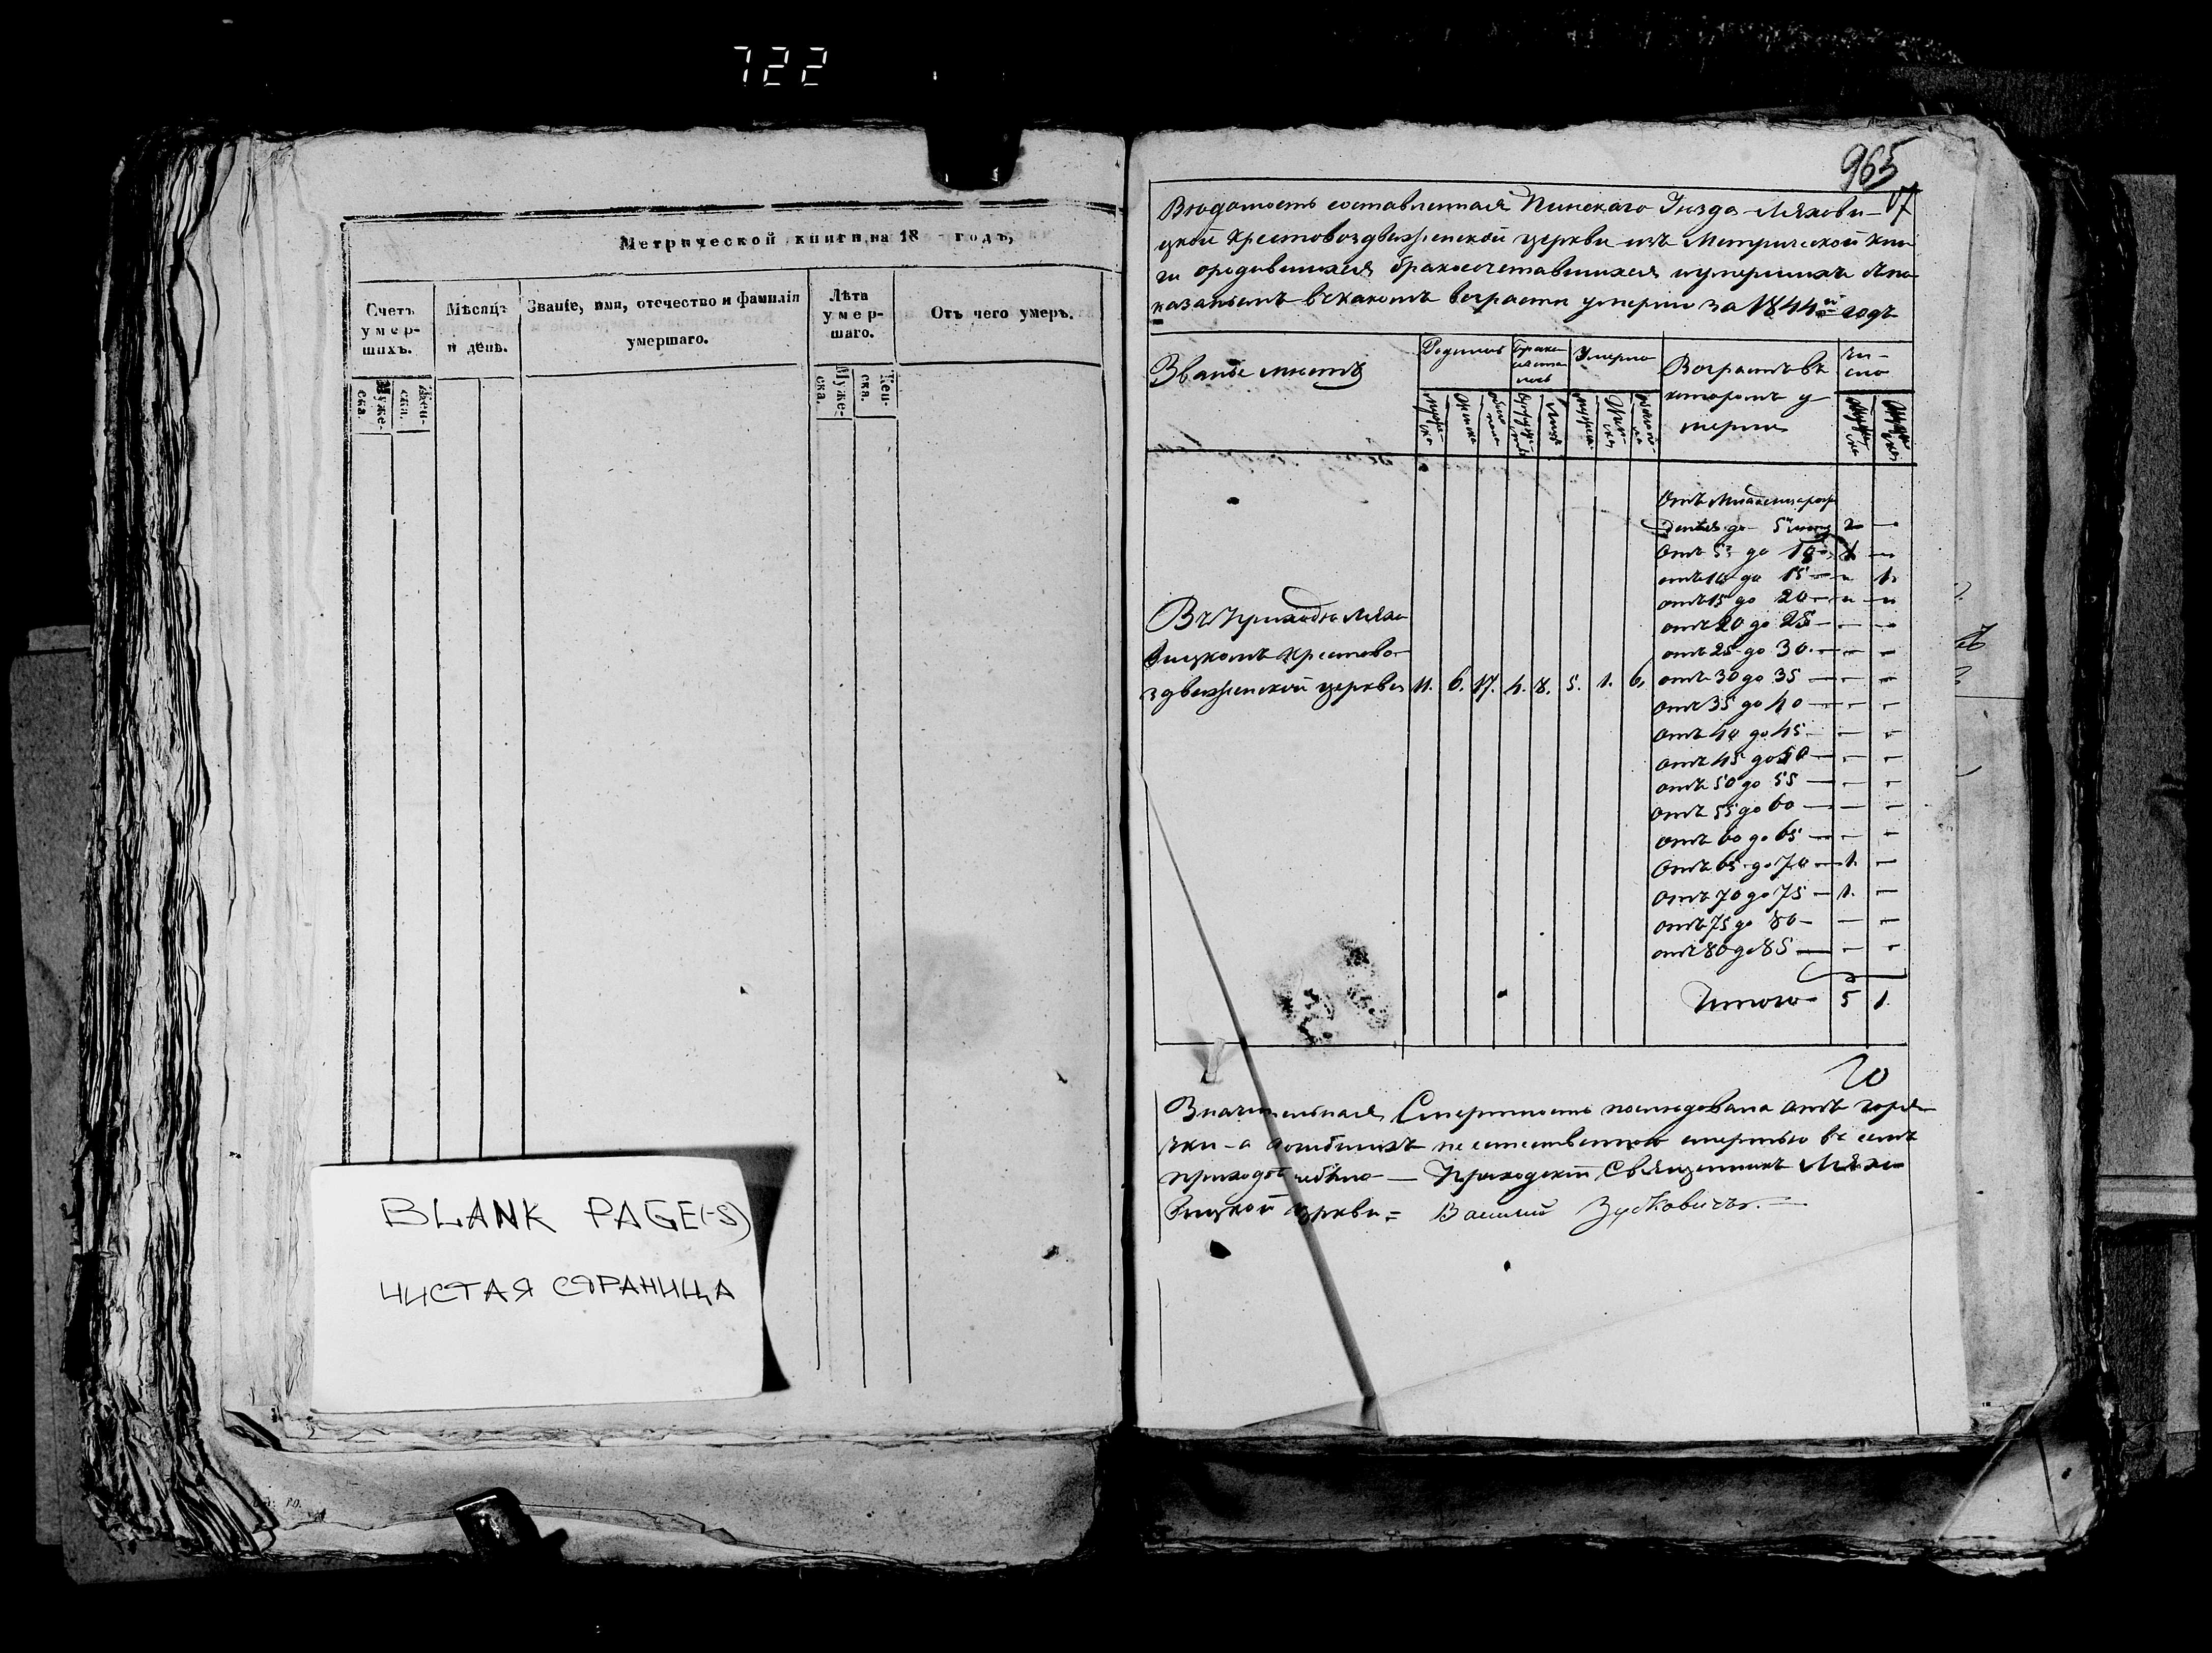 722
Метрической книги, на 18 годъ,
Счетъ умер-шихъ.
Мѣсяцъ и день.
Званіе, имя, отечество и фамилія умершаго.
Лѣта умер-шаго.
Отъ чего умеръ.
Муже-ска.
Жен-ска.
Муже-ска.
Жен-ска.
BLANK PAGE(-S)
ЧИСТАЯ СТРАНИЦА
965
Вѣдомость составленная Пинскаго Уѣзда Ляхови-
цкой Крестовоздвиженской церкви изъ Метрической кни-
ги ородившихся бракосочетавшихся иумершихъ
казаніемъ вкакомъ возрасти умерли за 1844й годъ
Званіе мѣстъ
Родилось
Умерло
Возрастъ въ
которомъ у
мерли
Чи-
сло
дентя до 5 2 —
отъ 5 до 10 1 —
отъ 10 до 15 — „ 1.
отъ 15 до 20 — „ „
отъ 20 до 25 — — —
отъ 25 до 30 — — —
Въ Приходѣ Ляхо
вицкомъ Крестово
здвиженской церкви 11. 6. 17. 4. 8. 5. 1. 6. отъ 30 до 35 — — —
отъ 35 до 40 — — —
отъ 40 до 45 — — —
отъ 45 до 50 — — —
отъ 50 до 55 — — —
отъ 55 до 60 — — —
отъ 60 до 65 — — —
отъ 65 до 70 — 1. —
отъ 70 до 75 — 1. —
отъ 75 до 80 — — —
отъ 80 до 85 — — —
Итого 5 1.
Значительная Смертность послѣдовала отъ горя-
чки а погибшихъ не естественною смертью въ семъ
приходѣ небыло — Приходскій Священникъ Ляхо
вицкой церкви = Василий